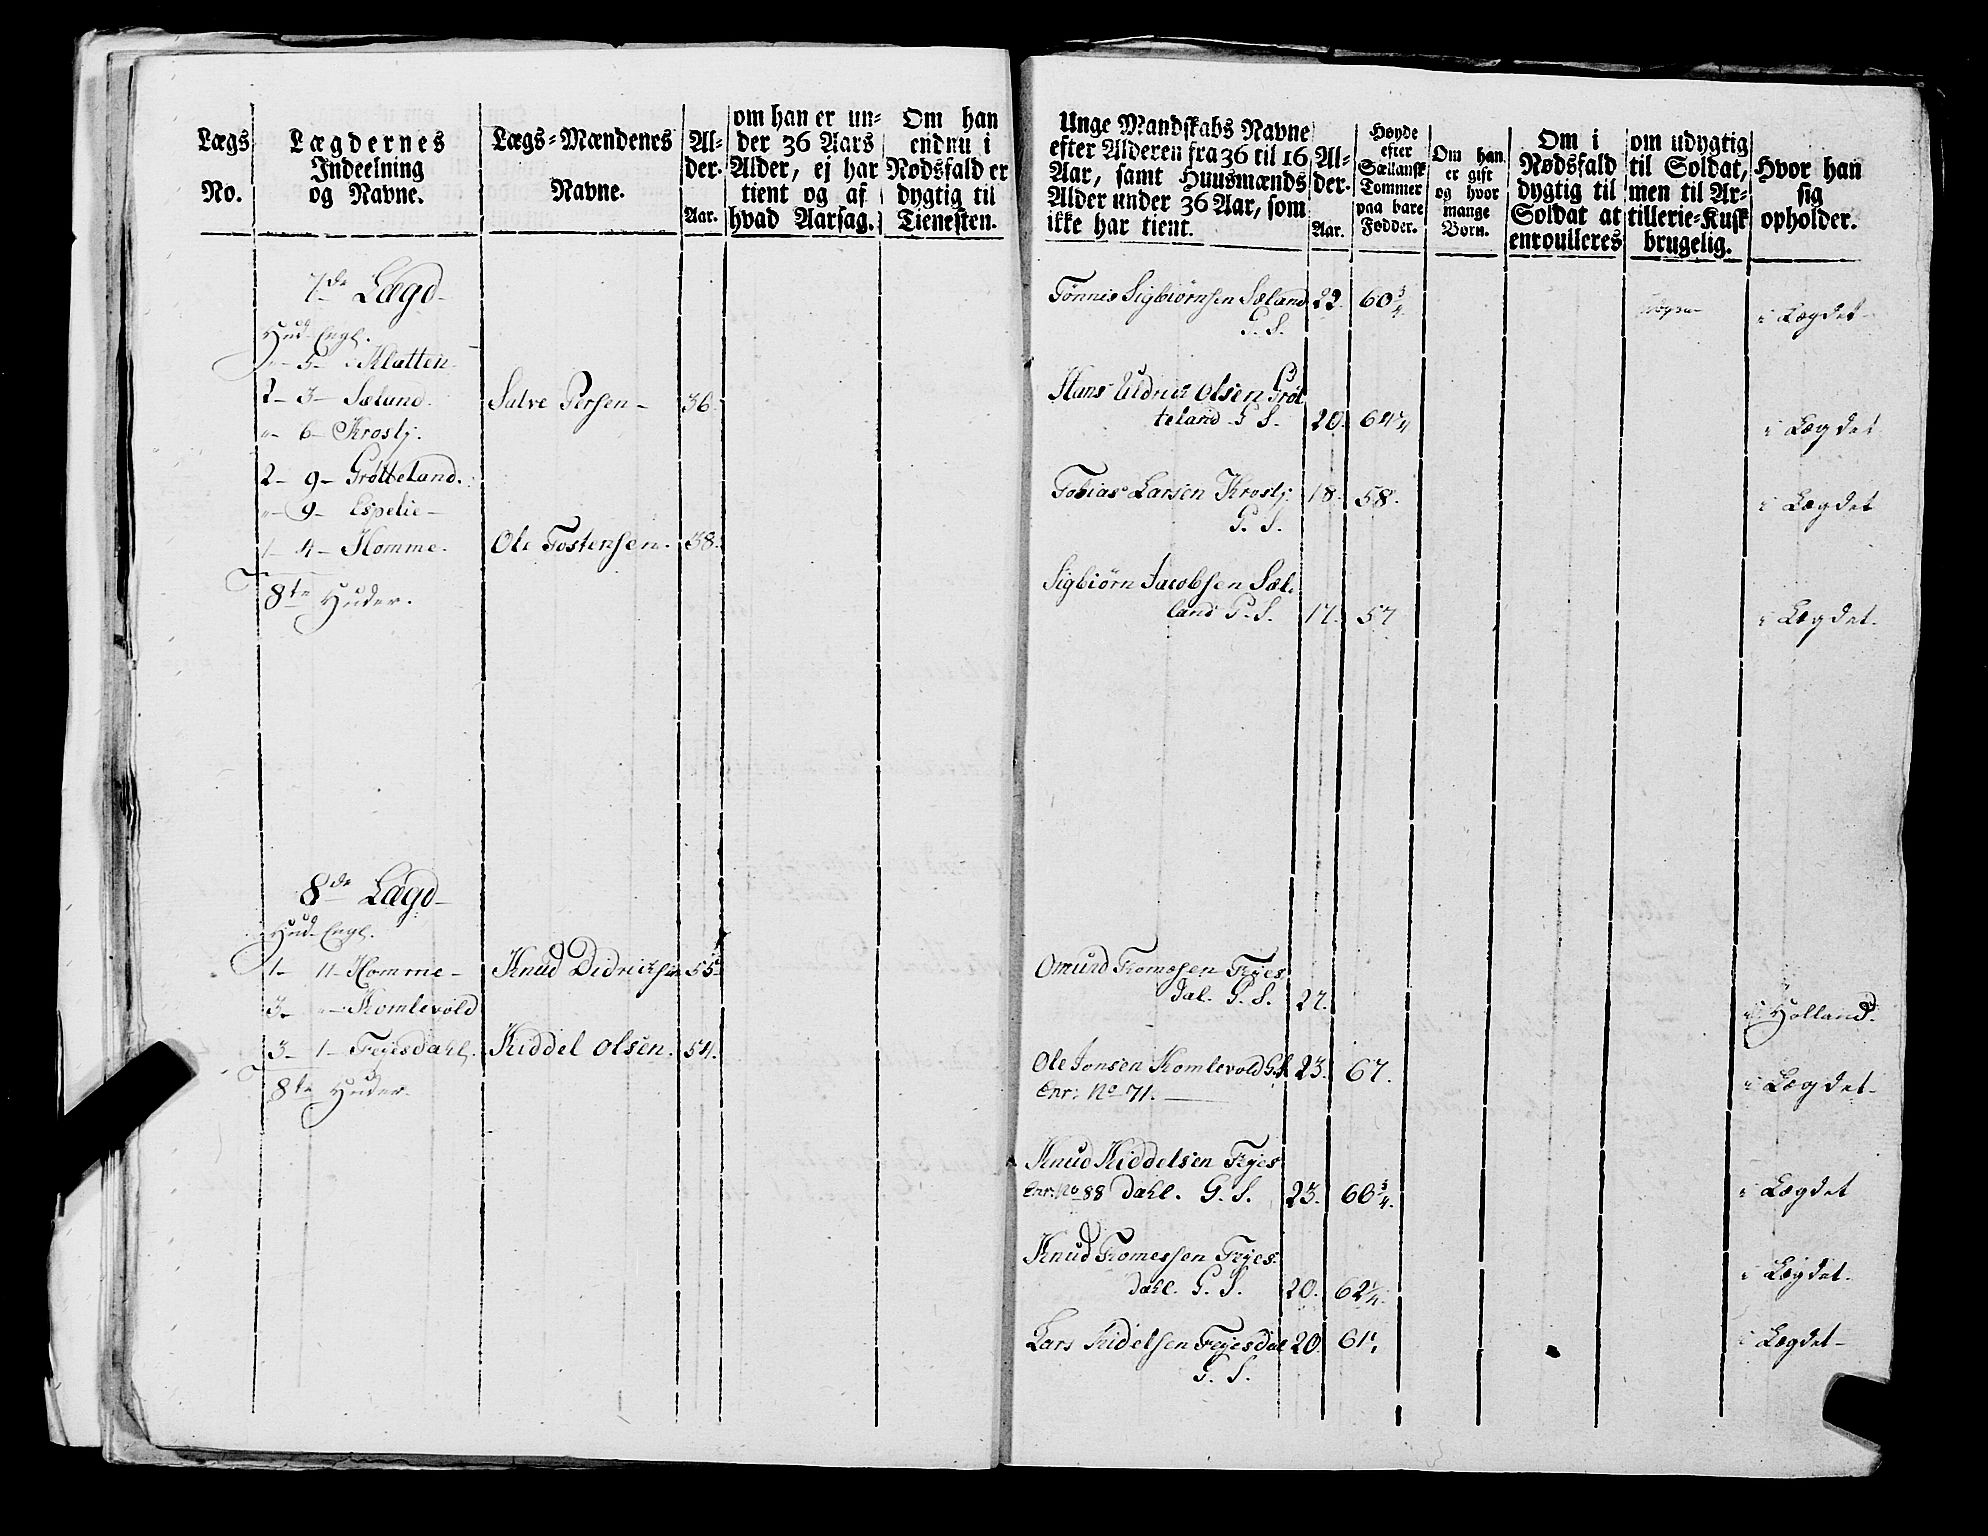 Lægs
No.
Lægdernes
Indeelning
og Navne.
Lægs=Mændenes
Navne.
Al-
der.
Aar.
om han er un=
der 36 Aars
Alder, ej har
tient og af
hvad Aarsag.
Om han
endnu i
Nødsfald er
dygtig til
Tienesten.
7de Lægd
Hud. Engl.
"- 5- Klatten
2- 3- Sæland. Salve Persen- 36.
"- 6- Krosli.
2- 9- Grøtteland.
"- 9- Espelie-
1- 4- Homme. Ole Tostensen. 38.
8te Huder.
8de Lægd
Hud. Engl.
1- 11- Homme- Knud Didricksen 55
3- "- Komlevold
3- 1- Feyesdahl. Kiddel Olsen. 54.
8te Huder.
Unge Mandskabs Navne
efter Alderen fra 36 til 16
Aar, samt Huusmænds
Alder under 36 Aar, som
ikke har tient.
Al-
der.
Aar.
Høyde
efter
Sællansk
Tommer
paa bare
Fødder.
Om han
er gift
og hvor
mange
Børn.
Om i
Nødsfald
dygtig til
Soldat at
enroulleres
om udygtig
til Soldat,
men til Ar-
tillerie=Kusk
brugelig.
Hvor han
sig
opholder.
Tønnis Sigbiørnsen Sæland 22. 60 3/4 i Lægdet
G. S.
Hans Uldrick Olsen Grøt
teland G S. 20. 64 i Lægdet
Tobias Larsen Krosli 18. 58. i Lægdet
G. S.
Sigbiørn Jacobsen Sæ-
land G. S. 17. 57 i Lægdet.
Omund Tomesen Feyes
dal. G. S. 27. i Holland.
Ole Jonsen Komlevold G.S 23. 67. i Lægdet-
Enr: No 71.
Knud Kiddelsen Feyes
Enr: No 88 dahl. G. S. 23. 66 3/4. i Lægdet
Knud Tomessen Feyes
dahl. G. S. 20. 62 1/4. i Lægdet.
Lars Kidelsen Feyesdal 20. 61 i Lægdet-
G. S.